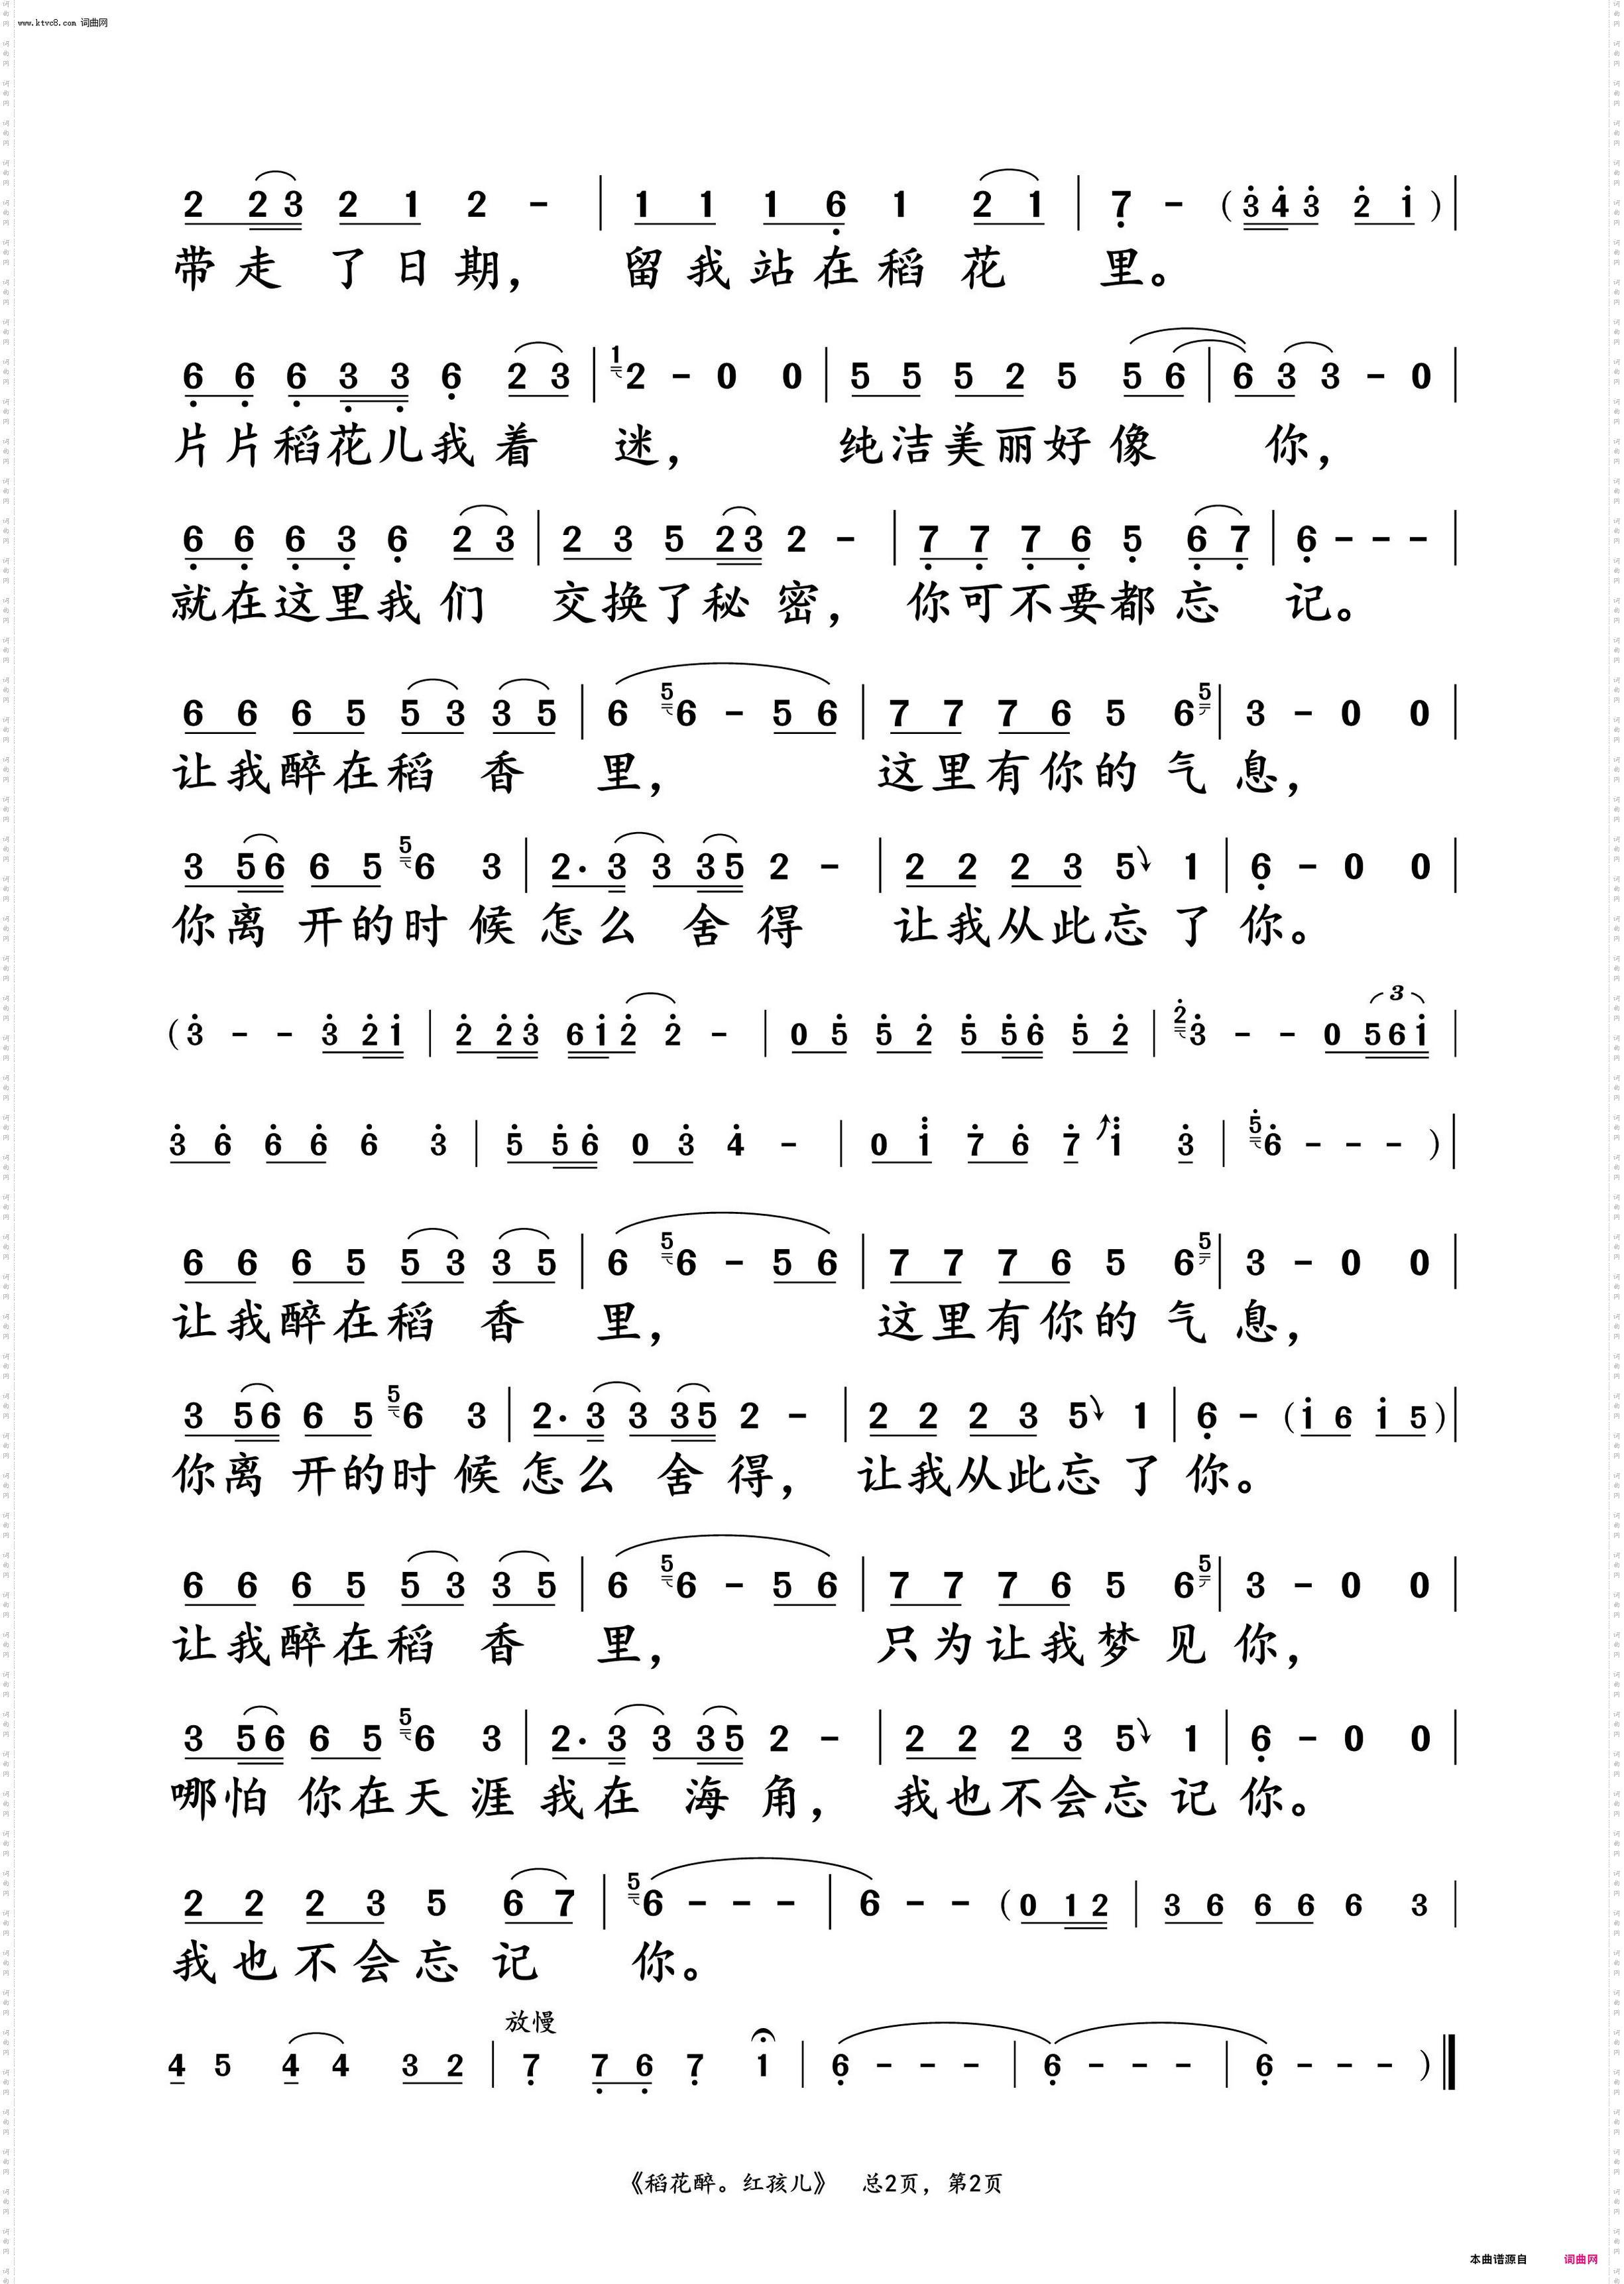 www.ktvc8.com 词曲网
2 2 3 2 1 2 - | 1 1 1 6 1 2 1 | 7 - ( 3 4 3 2 1 ) |
带走了日期， 留我站在稻花里。
6 6 6 3 3 6 2 3 | 1 2 - 0 0 | 5 5 5 2 5 5 6 | 6 3 3 - 0 |
片片稻花儿我着迷， 纯洁美丽好像你，
6 6 6 3 6 2 3 | 2 3 5 2 3 2 - | 7 7 7 6 5 6 7 | 6 - - - |
就在这里我们 交换了秘密， 你可不要都忘记。
6 6 6 5 5 3 3 5 | 6 5 6 - 5 6 | 7 7 7 6 5 6 5 | 3 - 0 0 |
让我醉在稻香里， 这里有你的气息，
3 5 6 6 5 5 6 3 | 2 · 3 3 3 5 2 - | 2 2 2 3 5 1 | 6 - 0 0 |
你离开的时候怎么舍得 让我从此忘了你。
( 3 - - 3 2 1 | 2 2 3 6 1 2 2 - | 0 5 5 2 5 5 6 5 2 | 2 3 - - 0 3 5 6 1 |
3 6 6 6 6 3 | 5 5 6 0 3 4 - | 0 1 7 6 7 1 3 | 5 6 - - - ) |
6 6 6 5 5 3 3 5 | 6 5 6 - 5 6 | 7 7 7 6 5 6 5 | 3 - 0 0 |
让我醉在稻香里， 这里有你的气息，
3 5 6 6 5 5 6 3 | 2 · 3 3 3 5 2 - | 2 2 2 3 5 1 | 6 - ( 1 6 1 5 ) |
你离开的时候怎么舍得， 让我从此忘了你。
6 6 6 5 5 3 3 5 | 6 5 6 - 5 6 | 7 7 7 6 5 6 5 | 3 - 0 0 |
让我醉在稻香里， 只为让我梦见你，
3 5 6 6 5 5 6 3 | 2 · 3 3 3 5 2 - | 2 2 2 3 5 1 | 6 - 0 0 |
哪怕你在天涯我在海角， 我也不会忘记你。
2 2 2 3 5 6 7 | 5 6 - - - | 6 - - ( 0 1 2 | 3 6 6 6 6 3 |
我也不会忘记你。
放慢
4 5 4 4 3 2 | 7 7 6 7 1 | 6 - - - | 6 - - - | 6 - - - ) ‖
《稻花醉。红孩儿》 总2页，第2页
本曲谱源自 词曲网